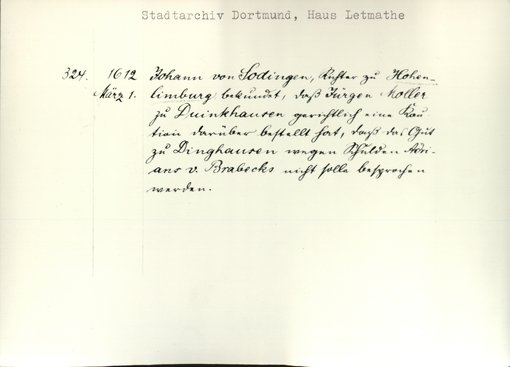 Stadtarchiv Dortmund, Haus Letmathe
324. 1612 Johann von Sodingen, Richter zu Hohen-
März 1. limburg bekundet, daß Jürgen Moller
zu Duinkhausen gerichtlich eine Kau
tion darüber bestellt hat, daß das Gut
zu Dinghausen wegen Schulden Adri-
ans v. Brabecks nicht solle besprochen
werden.